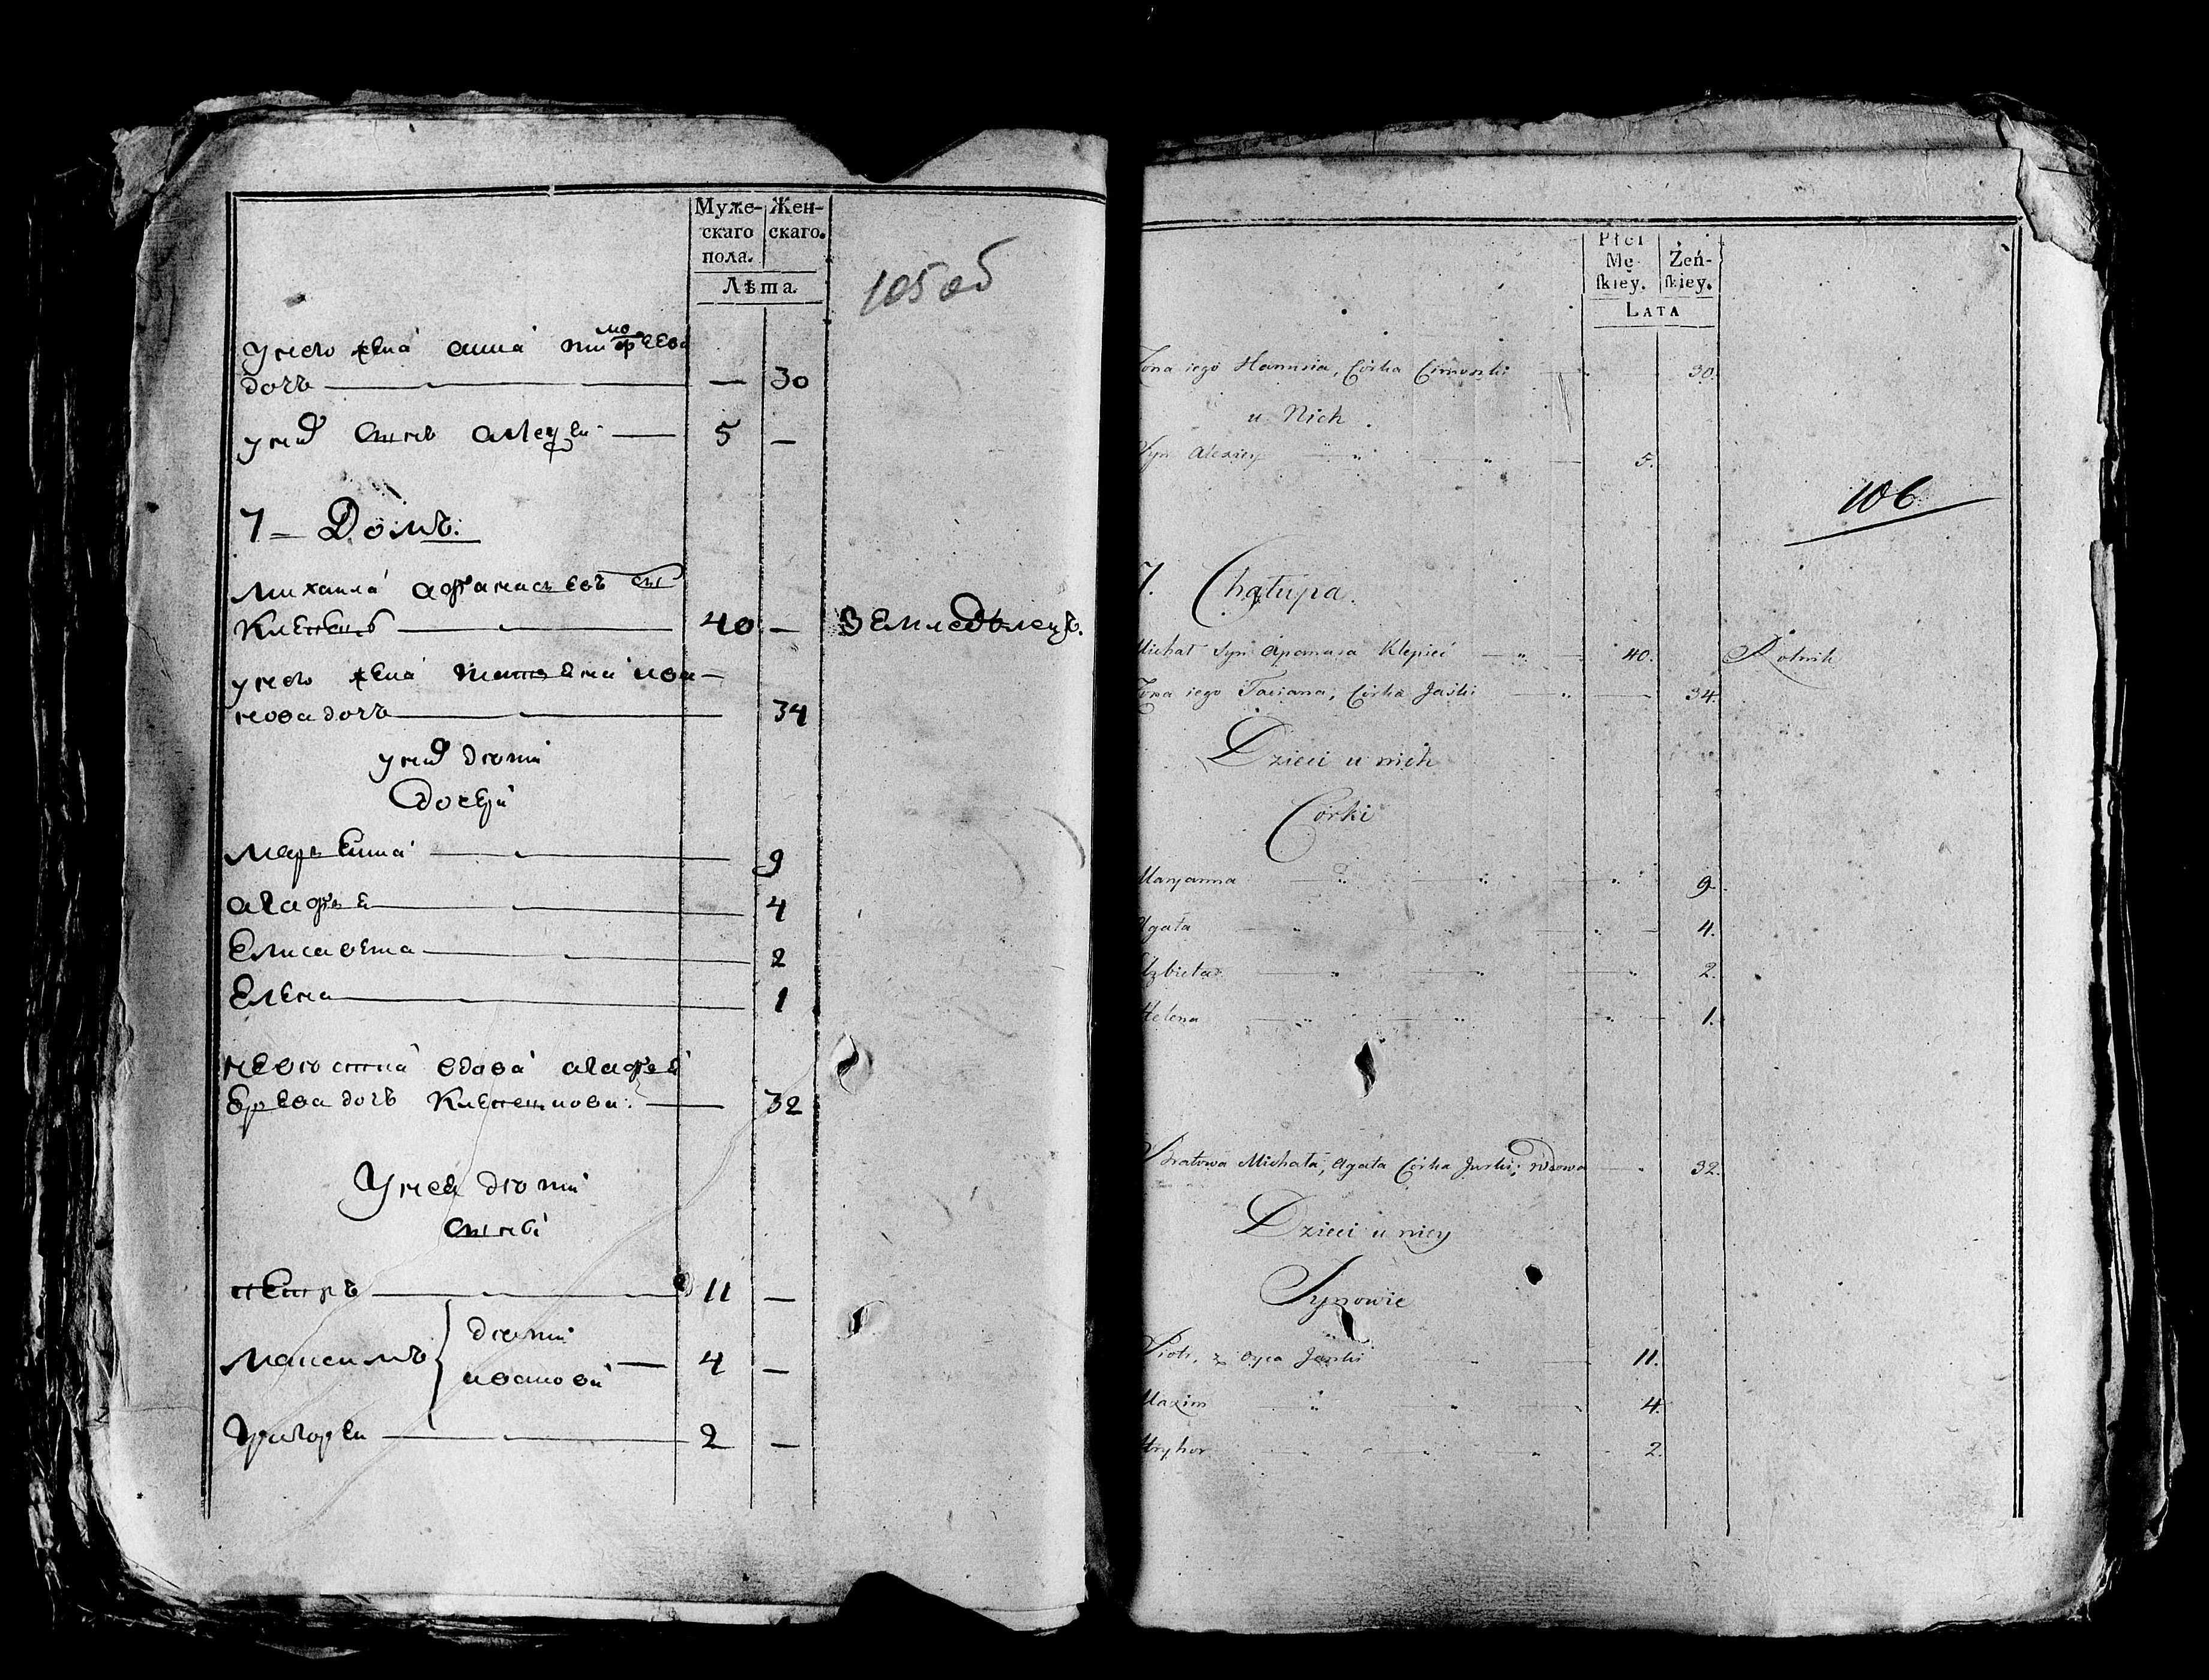 Муже-
скаго
пола.
Жен-
скаго.
Лѣта.
105 об
у него жена анна тимофеева
дочь — 30
у них сынъ алеѯеи — 5 —
7 – Домъ.
михаила афанасьевъ сы
Клепецъ — 40 — земледѣлецъ.
у него жена татьяна ива—
нова дочь — 34
у них дѣти
дочери
марьянна — 9
агафья — 4
Елисавета — 2
Елена — 1
невѣстка вдова агафья
дочь Клепецкова. — 32
У неи дѣти
сыны
петръ — 11 —
максимъ { дѣти
ивановы — 4 —
григореи — 2 —
Płci
Mę-
ſkiey.
Żeń-
ſkiey.
LATA
106
Żona iego Hannia, Córka Cimoszki 30.
u Nich
Syn Alexiey 5.
7. Chałupa.
Michał Syn Apanasa Klepieć 40. Rolnik
Żona iego Taciana, Córka Jaśki 34.
Dzieci u nich
Córki
Maryanna 9.
Agata 4.
Elżbieta 2.
Helena 1.
Bratowa Michała, Agata Córka Jurki, Wdowa 32.
Dzieci u niey
Synowie
Piotr, z Oyca Jaśki 11.
Maxim 4.
Hryhor 2.